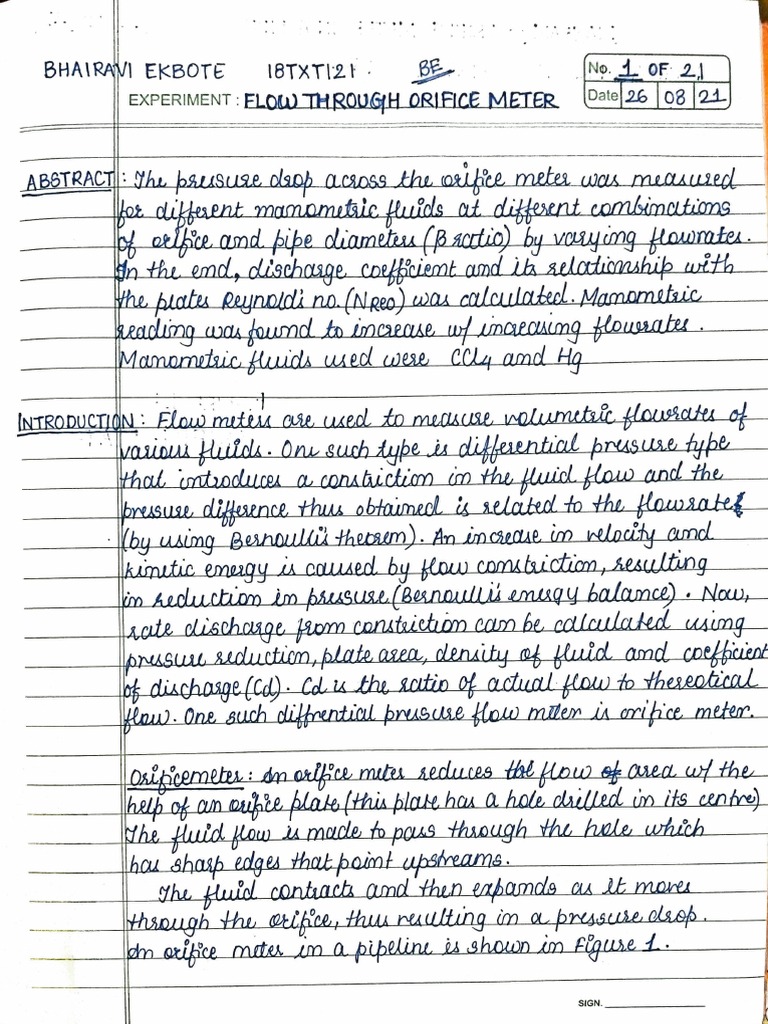 BHAIRAVI EKBOTE 18TXT121. BE
No. 1 OF 21
EXPERIMENT : FLOW THROUGH ORIFICE METER
Date 26 08 21
ABSTRACT : The pressure drop across the orifice meter was measured
for different manometric fluids at different combinations
of orifice and pipe diameters (β ratio) by varying flowrates.
In the end, discharge coefficient and its relationship with
the plates Reynold's no. (NReo) was calculated. Manometric
reading was found to increase w/ increasing flowrates.
Manometric fluids used were CCl4 and Hg
INTRODUCTION : Flow meters are used to measure volumetric flowrates of
various fluids. One such type is differential pressure type
that introduces a constriction in the fluid flow and the
pressure difference thus obtained is related to the flowrate
(by using Bernoulli's theorem). An increase in velocity and
kinetic energy is caused by flow constriction, resulting
in reduction in pressure (Bernoulli's energy balance). Now,
rate discharge from constriction can be calculated using
pressure reduction, plate area, density of fluid and coefficient
of discharge (Cd). Cd is the ratio of actual flow to thereotical
flow. One such diffrential pressure flow meter is orifice meter.
Orificemeter : An orifice meter reduces the flow of area w/ the
help of an orifice plate (this plate has a hole drilled in its centre)
The fluid flow is made to pass through the hole which
has sharp edges that point upstreams.
The fluid contracts and then expands as it moves
through the orifice, thus resulting in a pressure drop.
An orifice meter in a pipeline is shown in Figure 1.
SIGN.